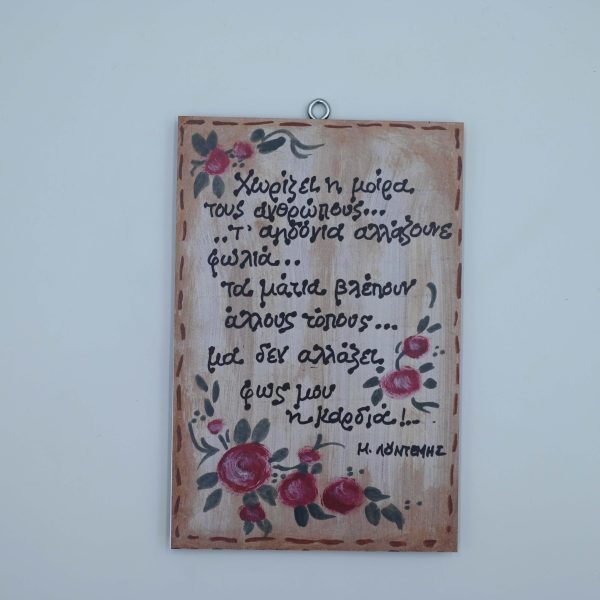 Χωρίζει η μοίρα
τους ανθρώπους...
..τ' αηδόνια αλλάζουνε
φωλιά...
τα μάτια βλέπουν
άλλους τόπους...
μα δεν αλλάζει
φως μου
η καρδιά!..
Μ. ΛΟΥΝΤΕΜΗΣ